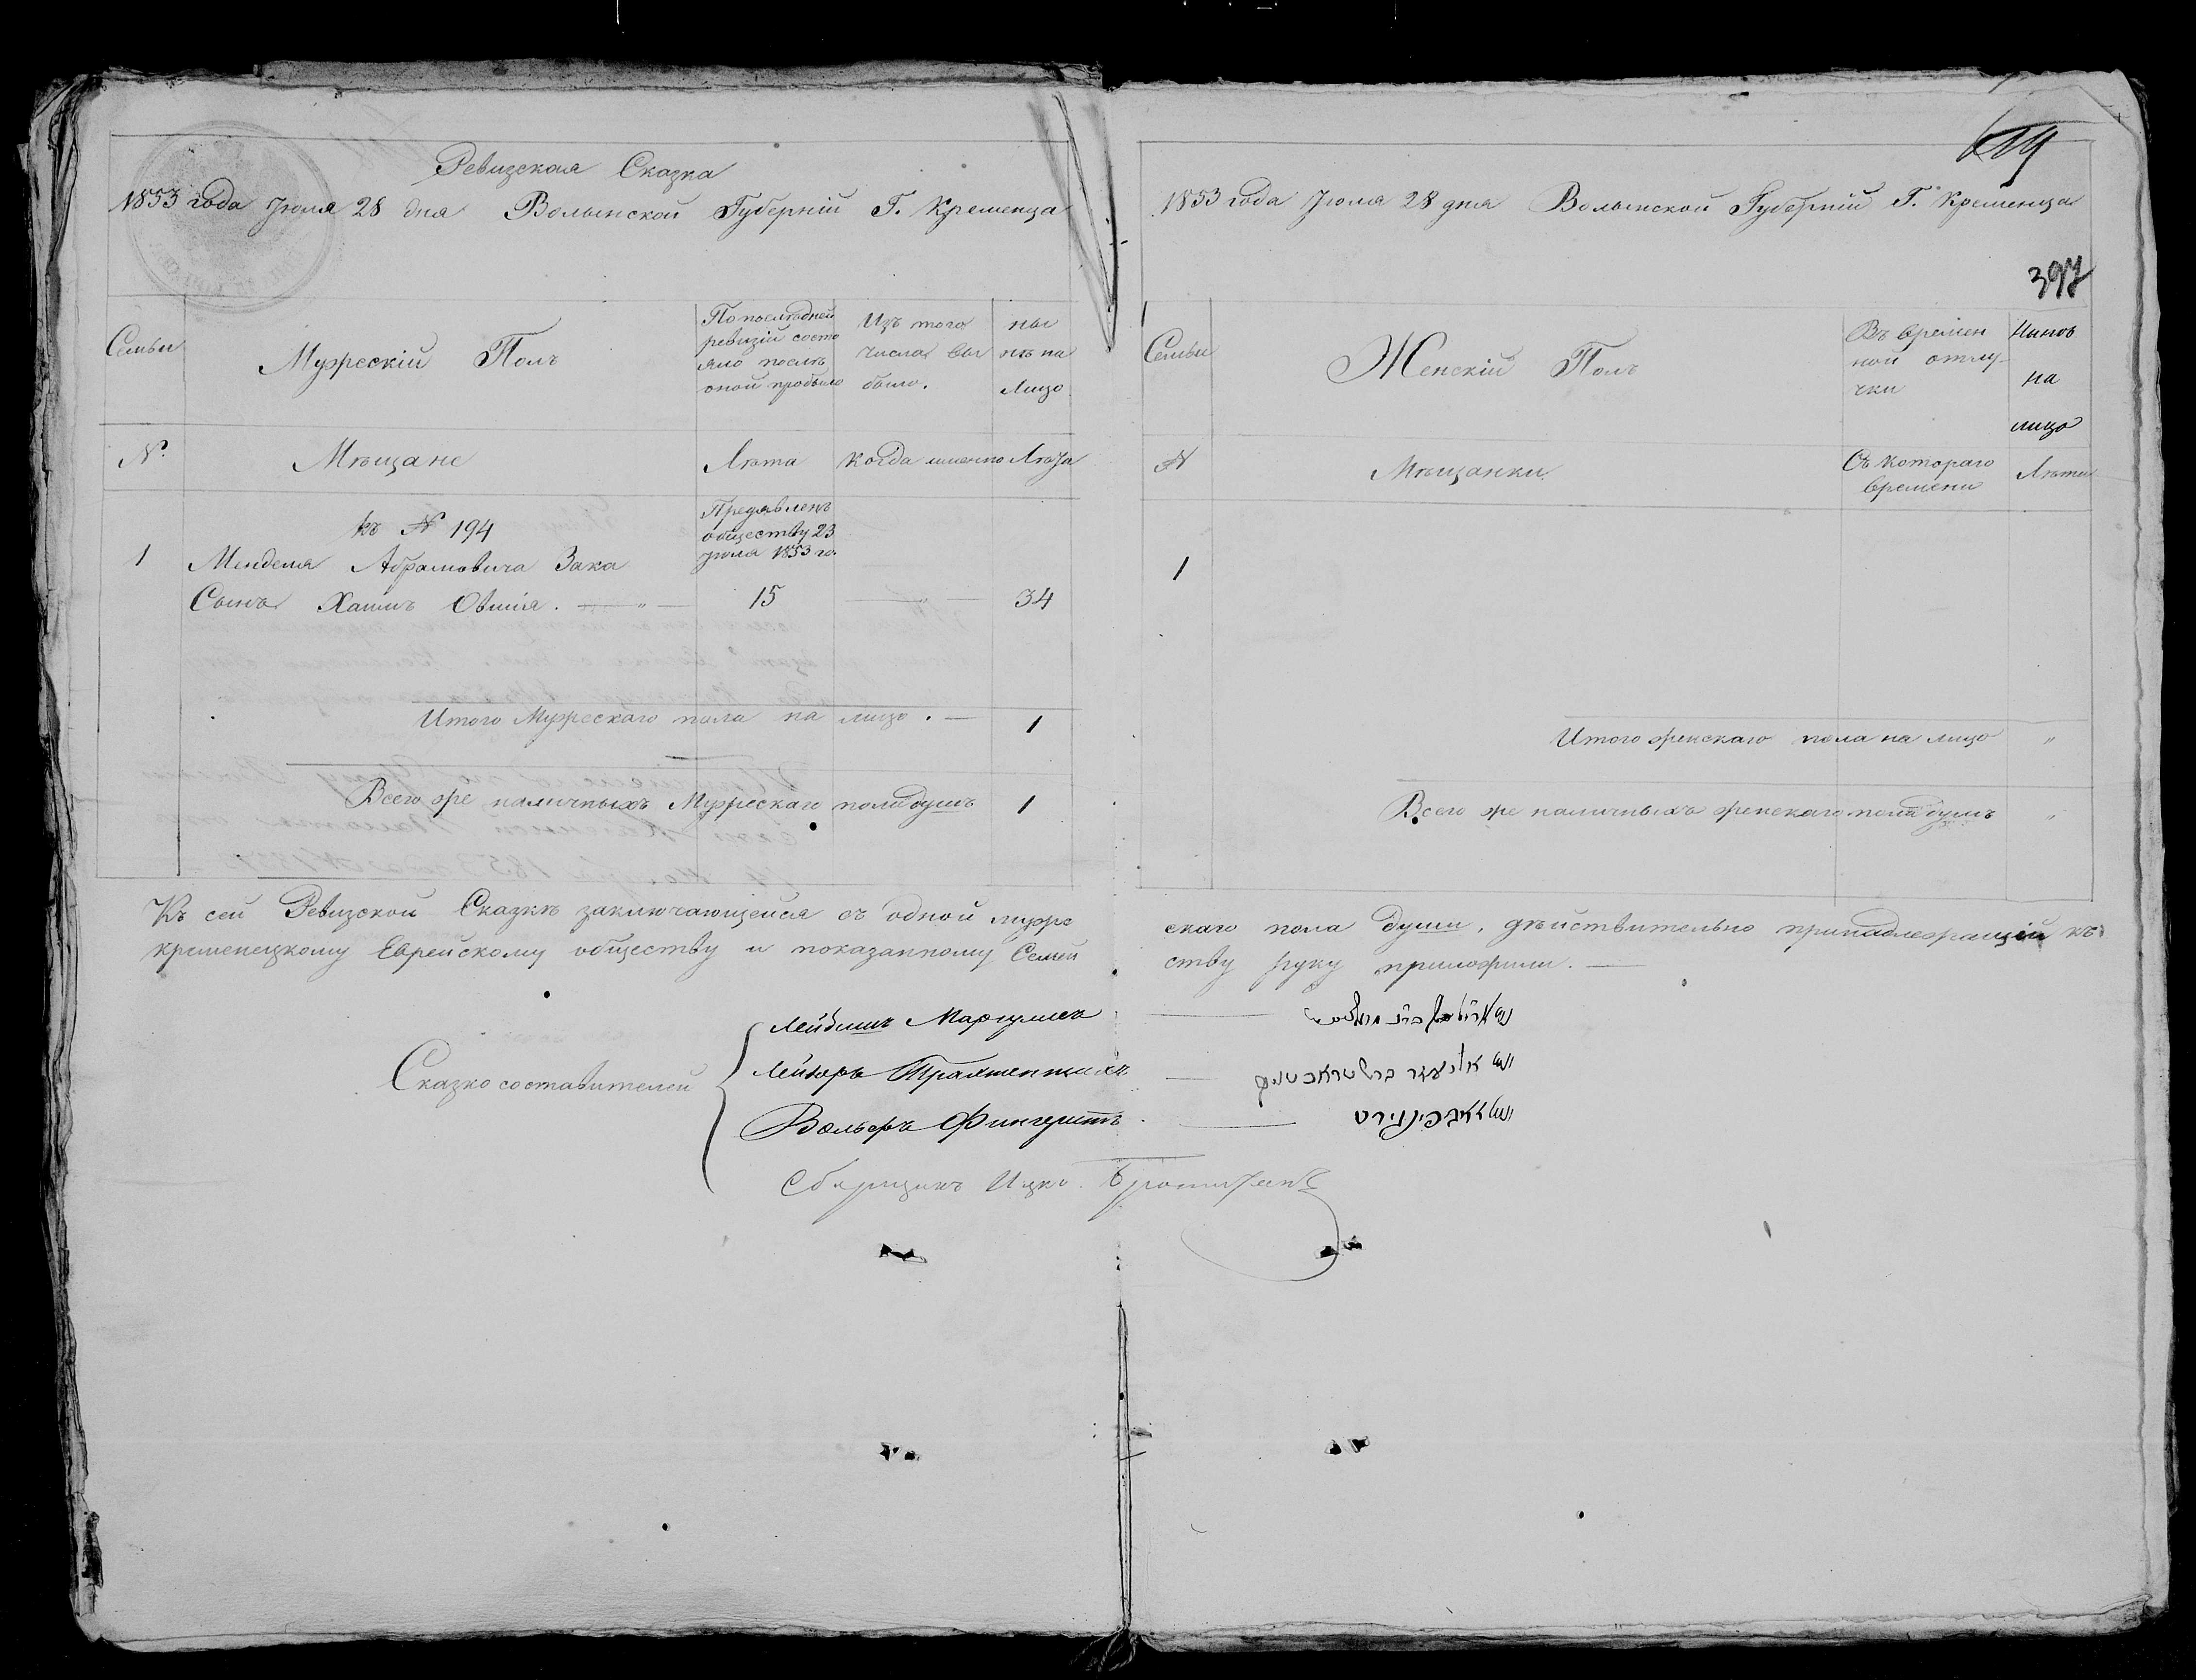 Ревизская Сказка
1853 года Июля 28 дня Волынской Губерніи Г. Кременца
Семьи
Мужескій Полъ
По последней
ревизіи состо
яло после
оной прибыло
Изъ того
числа вы
было.
ны
нѣ на
Лицо
№
Мѣщане
Лѣта
когда именно
Лѣта
къ № 194
Предявленъ
обществу 23
Іюля 1853 го.
1
Менделя Абрамовича Зака
Сынъ Хаимъ Овшія. — " —
15
— " —
34
Итого Мужескаго пола на лицо. —
1
Всего же наличныхъ Мужескаго пола душъ
1
1853 года Іюля 28 дня Волынской Губерніи Г. Кременца
397
Семьи
Женскій Полъ
Въ времен
ной отлу-
чки
Нынѣ
на
лицо
№
Мѣщанки
Съ котораго
времени
Лѣта
1
Итого женскаго пола на лицо "
Всего же наличныхъ женскаго пола душъ "
Къ сей Ревизской Сказкѣ заключающейся въ одной муже
скаго пола души, дѣйствительно принадлежащей къ
кременецкому Еврейскому обществу и показанному Семей
ству руку приложили. —
Сказкосоставителей
Лейбишъ Маргулисъ
Лейзоръ
Вольфъ Фингерутъ
Сборщикъ Ицко